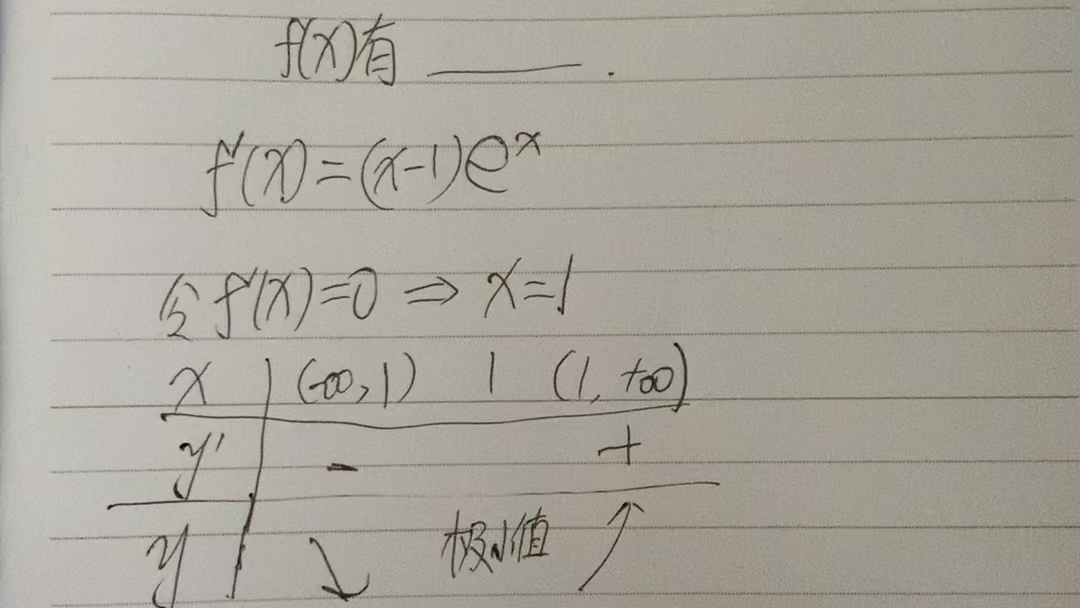 f(x)有 ______ .
f'(x)=(x-1)e^x
令f'(x)=0 ⇒ x=1
x | (-∞,1) 1 (1,+∞)
y' | - +
y | ↘ 极小值 ↗